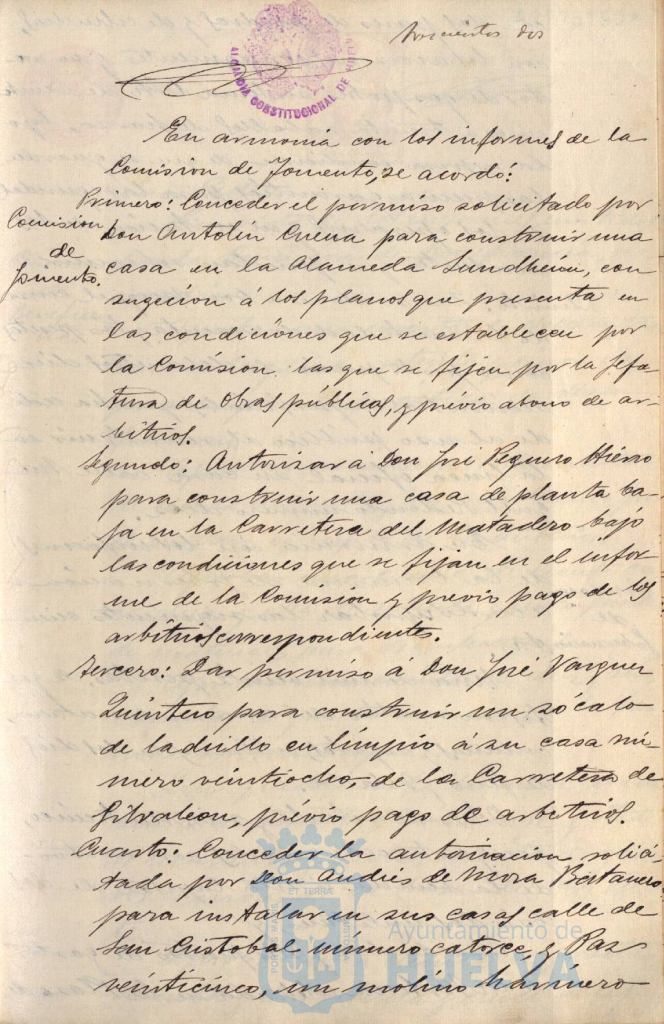 doscientos dos
ALCALDIA CONSTITUCIONAL DE HUELVA
En armonia con los informes de la
Comision de Fomento, se acordó:
Comision
de
Fomento.
Primero: Conceder el permiso solicitado por
Don Antolin Cuena para construir una
casa en la Alameda Sundheim, con
sugecion á los planos que presenta en
las condiciones que se establecen por
la Comision las que se fijen por la Jefa-
tura de Obras públicas, y prévio abono de ar-
bitrios.
Segundo: Autorizar á Don José Reguero Hierro
para construir una casa de planta ba-
ja en la Carretera del Matadero bajo
las condiciones que se fijan en el infor-
me de la Comision y previo pago de los
arbitrios correspondientes.
Tercero: Dar permiso á Don José Vazquez
Quintero para construir un zócalo
de ladrillo en limpio á su casa nú-
mero veintiocho, de la Carretera de
Gibraleon, prévio pago de arbitrios.
Cuarto: Conceder la autorizacion solici-
tada por Don Andrés de Mora Batanero
para instalar en sus casas calle de
San Cristobal número catorce, y Paz
veinticinco, un molino harinero
PORTUS MARIS ET TERRAE
Ayuntamiento de
HUELVA